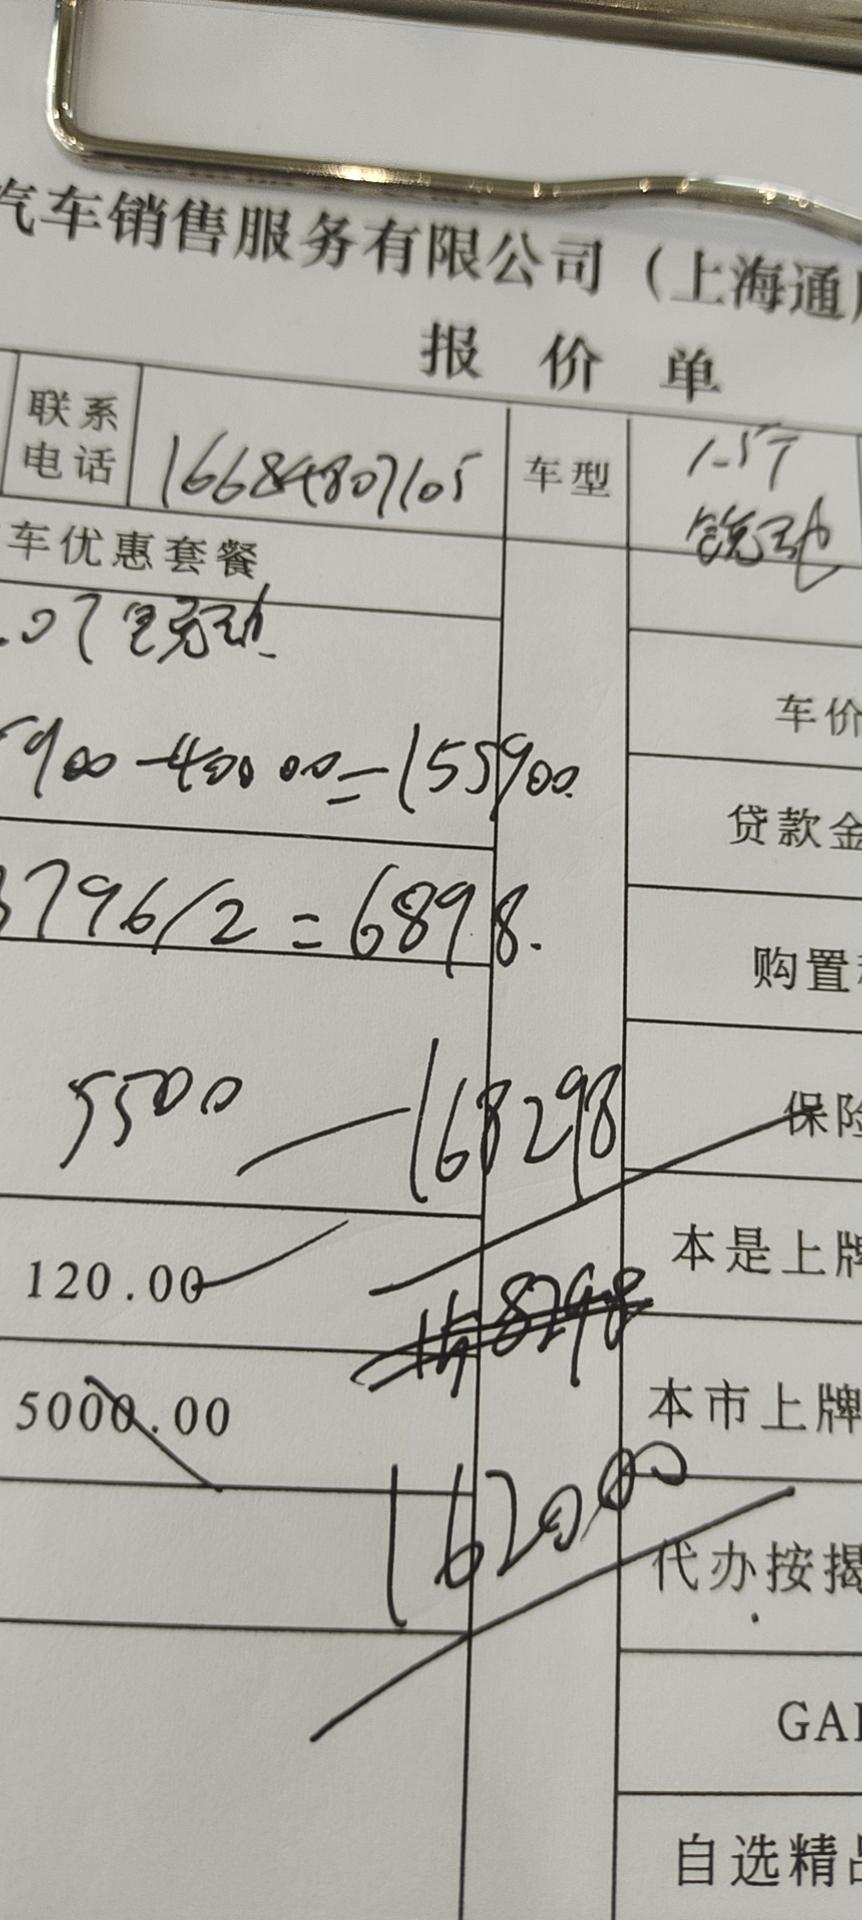 汽车销售服务有限公司（上海通用
报价单
联系电话 16684807105 车型 1.5T
锐动
车优惠套餐
.0T 锐动
5900-40000=155900
车价
贷款金
3796/2=6898.
购置
5500 168298
保险
120.00
本是上牌
5000.00
本市上牌
162000
代办按揭
GAP
自选精品